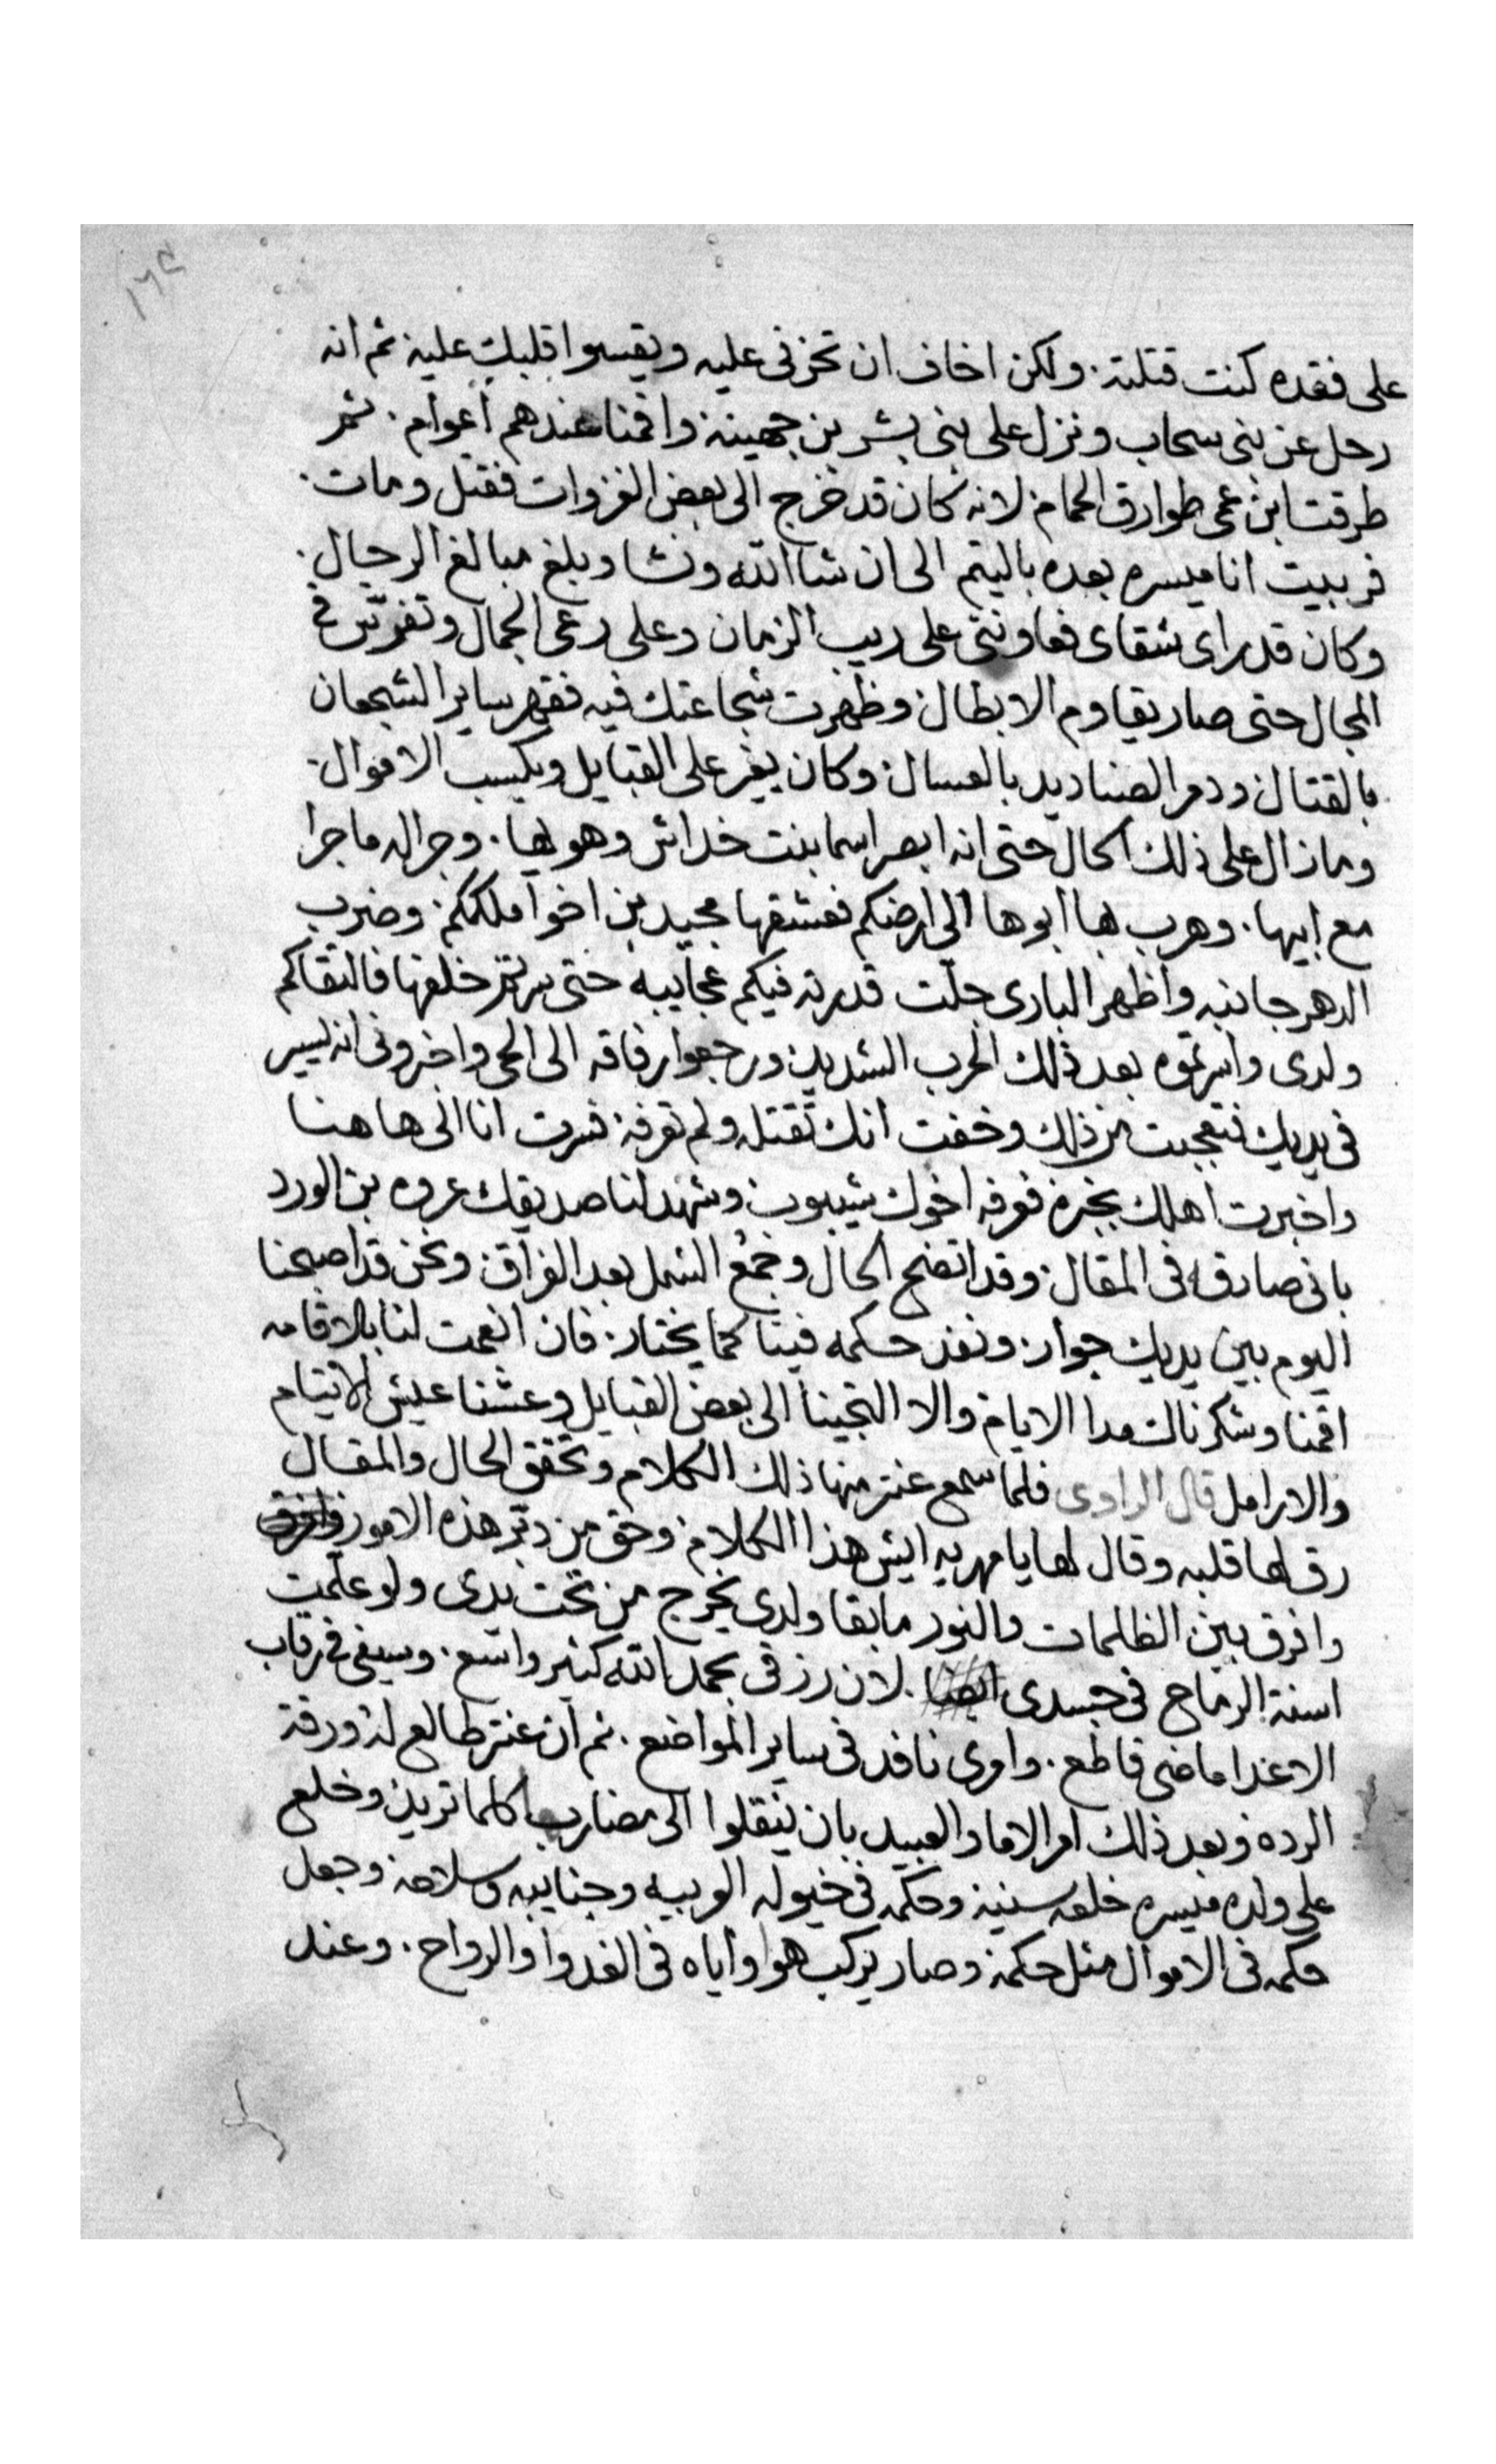 ١٦٤
على فقده كنت قتلته. ولكن اخاف ان تحزنى عليه ويقسوا قلبك عليه ثم انه
رحل عن بنى سحاب ونزل على بنى بشر بن جهينه واقمنا عندهم اعوام. ثم
طرقت ابن عمى طوارق الحمام لانه كان قد خرج الى بعض الغزوات فقتل ومات.
فربيت انا ميسره بعده باليتم الى ان شا الله ونشا وبلغ مبالغ الرجال.
وكان قد راى شقاى فعاوننى على ريب الزمان وعلى رعى الجمال وتفرس فى
المجال حتى صار يقاوم الابطال وظهرت شجاعتك فيه فقهر ساير الشجعان
بالقتال ودمر الصناديد بالعسال وكان يغير على القبايل ويكسب الاموال.
وما زال على ذلك الحال حتى انه ابصر اسما بنت خداش وهويها. وجرا له ما جرا
مع ابيها. وهرب بها ابوها الى ارضكم فعشقها مجيد بن اخوا ملككم. وضرب
الدهر جانبه واظهر البارى جلت قدرته فيكم عجايبه حتى خلفها فالتقاكم
ولدى واسرتموه بعد ذلك الحرب الشديد ورجعوا رفاقه الى الحى واخبرونى انه اسير
فى يديك فتعجبت من ذلك وخفت انك تقتله ولم تعرفه فسرت انا الى هاهنا
واخبرت اهلك بخبره فعرفه اخوك شيبوب وشهد لنا صديقك عروه بن الورد
بانى صادقه فى المقال وقد اتضح الحال وجمع الشمل بعد الفراق ونحن قد اصبحنا
اليوم بين يديك جوار ونفذ حكمه فينا كما يختار فان انعمت لنا بالاقامه
اقمنا وشكرناك مدا الايام والا التجينا الى بعض القبايل وعشنا عيش الايتام
والارامل قال الراوى فلما سمع عنتر منها ذلك الكلام وتحقق الحال والمقال
رق لها قلبه وقال لها يا مهريه ايش هذا الكلام وحق من دبر هذه الامور
وافرق بين الظلمات والنور ما بقا ولدى يخرج من تحت يدى ولو علمت
اسنة الرماح فى جسدى لان رزقى بحمد الله كثير واسع. وسيفى فى رقاب
الاعدا ماضى قاطع. وامرى نافد فى ساير المواضع. ثم ان عنتر طالع
وبعد ذلك امر الاما والعبيد بان ينقلوا الى مضاربها كلما تريد وخلع
على ولده ميسره خلعه سنيه وحكمه فى خيوله العربيه وجنايبه وسلاحه وجعل
حكمه فى الاموال مثل حكمه وصار يركب هوا واياه فى الغدوا والرواح. وعند